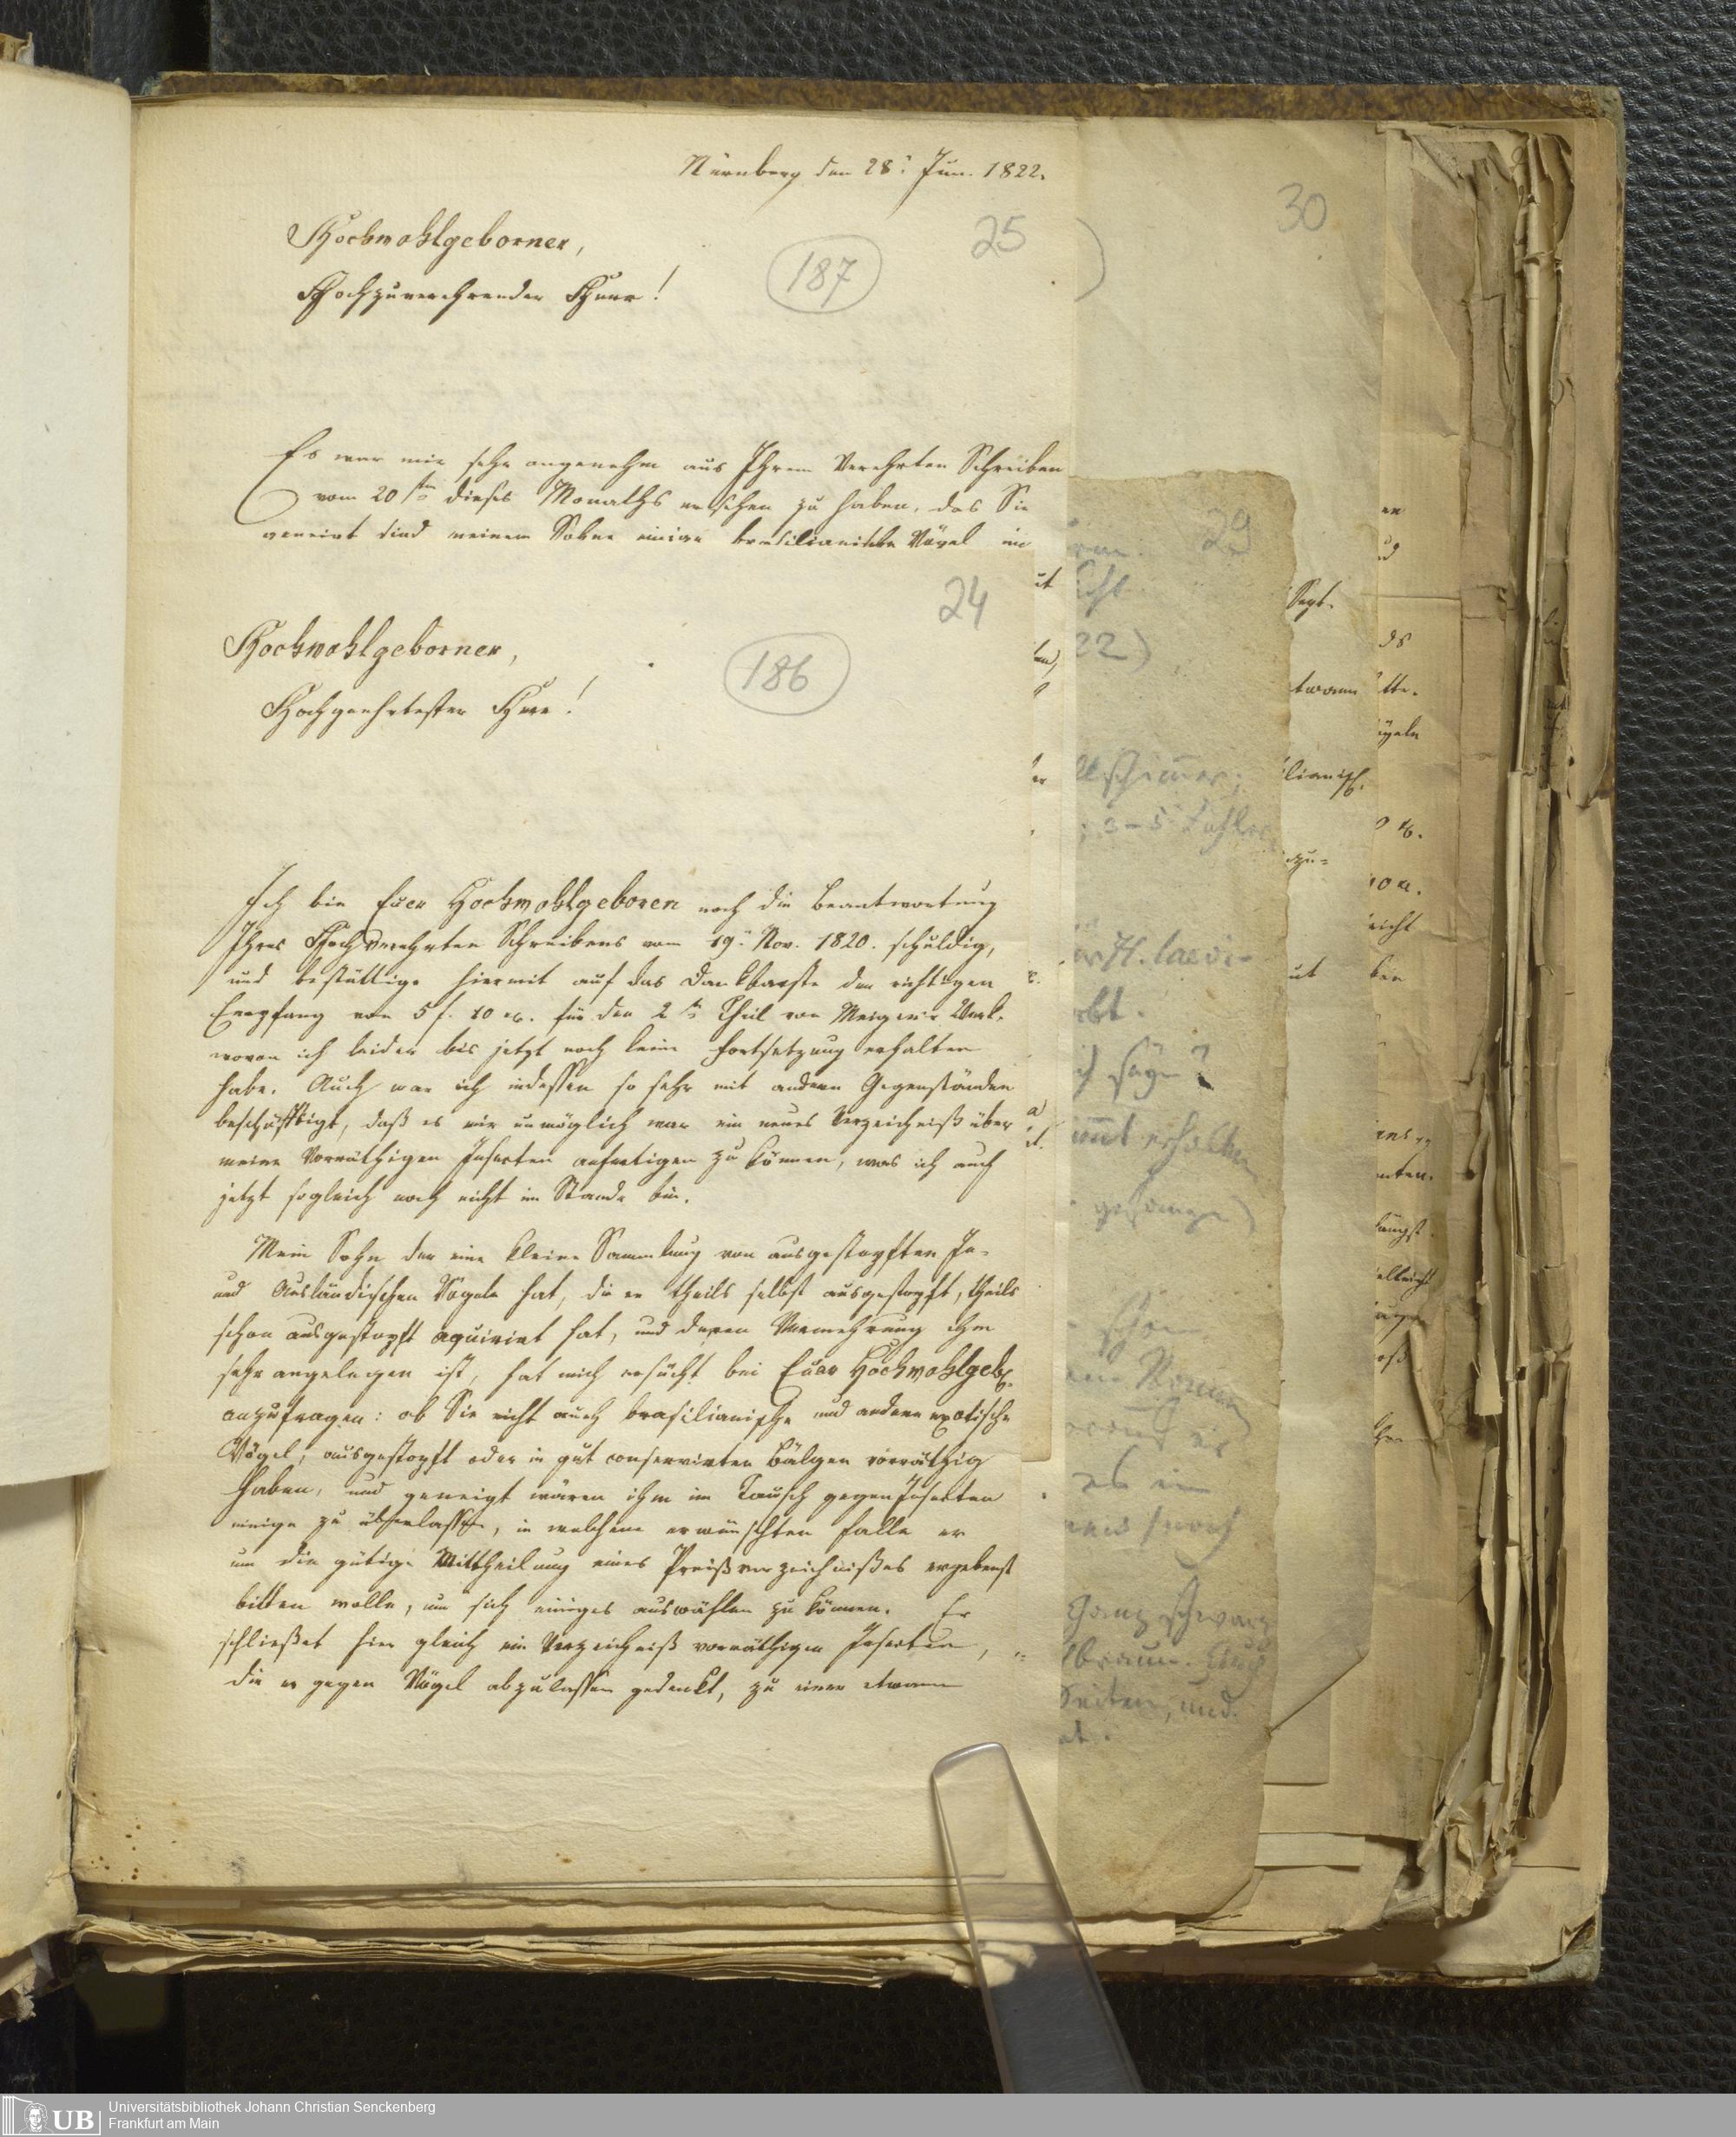 Nürnberg den 28. Jun. 1822.
25
Hochwohlgeborner,
187
Hochzuverehrender Herr!
Es war mir sehr angenehm aus Ihrem Verehrten Schreiben
vom 20sten dieses Monaths ersehen zu haben, das Sie
geneigt sind meinem Sohne einige brasilianische Vögel im
24
Hochwohlgeborner,
186
Hochgeehrtester Herr!
Ich bin Euer Hochwohlgeboren noch die Beantwortung
Ihres Hochverehrten Schreibens vom 19. Nov. 1820. schuldig,
und bestättige hiermit auf das Dankbarste den richtigen
Empfang von 5 f. 10 xr. für den 2n Theil von Meigen's Werk.
wovon ich leider bis jetzt noch keine Fortsetzung erhalten
habe. Auch war ich indessen so sehr mit andern Gegenständen
beschäfftigt, daß es mir unmöglich war ein neues Verzeichniß über
meine Vorräthigen Insecten anfertigen zu können, was ich auch
jetzt sogleich noch nicht im Stande bin.
Mein Sohn der eine kleine Sammlung von ausgestopften In-
und Ausländischen Vögeln hat, die er theils selbst ausgestopft, theils
schon ausgestopft aquirirt hat, und deren Vermehrung ihm
sehr angelegen ist, hat mich ersucht bei Euer Hochwohlgeb.
anzufragen: ob Sie nicht auch brasilianische und andere exotische
Vögel, ausgestopft oder in gut conservirten Bälgen vorräthig
haben, und geneigt wären ihm im Tausch gegen Insecten
einige zu überlassen, in welchem erwünschten Falle er
um die gütige Mittheilung eines Preißverzeichnißes ergebenst
bitten wolle, um sich einiges auswählen zu können. Er
schließet hier gleich ein Verzeichniß vorräthiger Insecten,
die er gegen Vögel abzulassen gedenkt, zu einer etwann
30
29
22)
Sept.
3-5
laevi-
ich sage?
erhalten
ganz schwarz
braun. Auch
Seiten, und
UB
Universitätsbibliothek Johann Christian Senckenberg
Frankfurt am Main